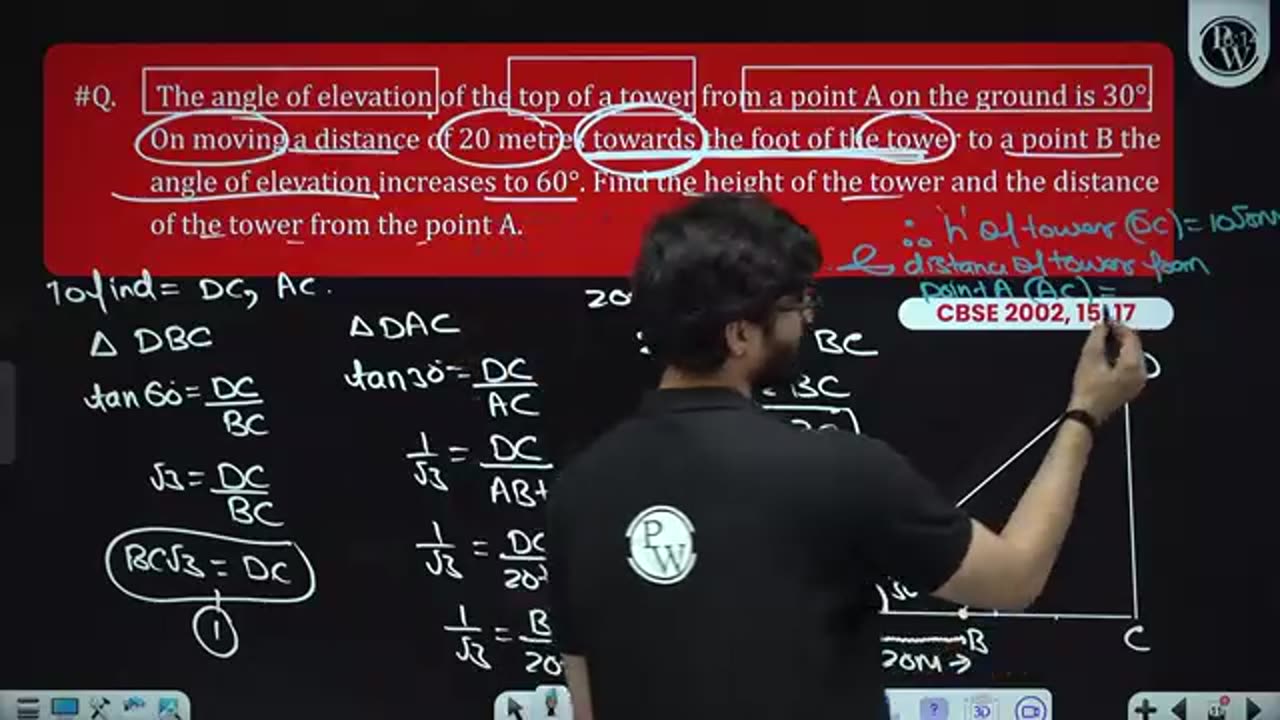 #Q. The angle of elevation of the top of a tower from a point A on the ground is 30°.
On moving a distance of 20 metres towards the foot of the tower to a point B the
angle of elevation increases to 60°. Find the height of the tower and the distance
of the tower from the point A.
∴ 'h' of tower (DC) =
& distance of tower from
point A (AC) =
CBSE 2002, 15, 17
To find = DC, AC.
△ DBC
tan 60° = DC/BC
√3 = DC/BC
BC√3 = DC
1
△ DAC
tan 30° = DC/AC
1/√3 = DC/AB+
1/√3 = DC/20+
1/√3 = B/20
20
BC
= BC
20
D
B
C
20m →
PW
PW
3D